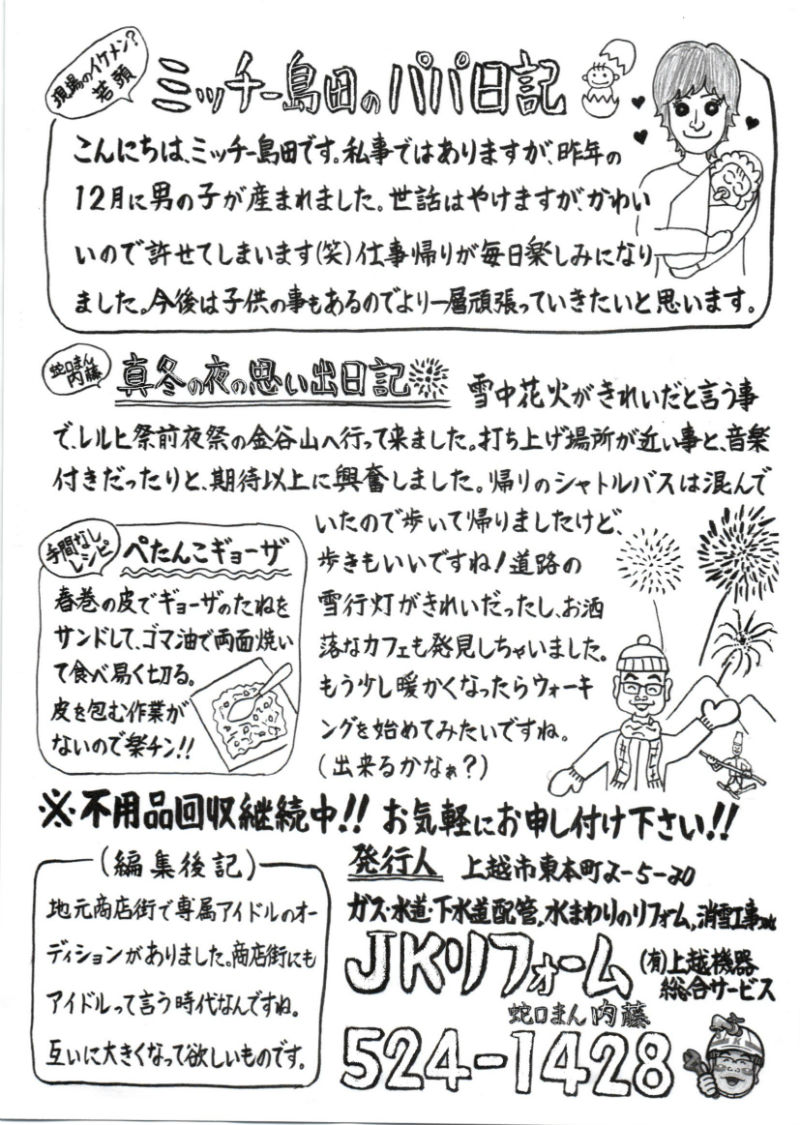 現場のイケメン?
若頭
ミッチー島田のパパ日記
こんにちは、ミッチー島田です。私事ではありますが、昨年の
12月に男の子が産まれました。世話はやけますが、かわい
いので許せてしまいます(笑)仕事帰りが毎日楽しみになり
ました。今後は子供の事もあるのでより一層頑張っていきたいと思います。
蛇口まん
内藤
真冬の夜の思い出日記
雪中花火がきれいだと言う事
で、レルヒ祭前夜祭の金谷山へ行って来ました。打ち上げ場所が近い事と、音楽
付きだったりと、期待以上に興奮しました。帰りのシャトルバスは混んで
いたので歩いて帰りましたけど、
歩きもいいですね!道路の
雪行灯がきれいだったし、お洒
落なカフェも発見しちゃいました。
もう少し暖かくなったらウォーキ
ングを始めてみたいですね。
(出来るかなぁ?)
手間なし
レシピ
ぺたんこギョーザ
春巻の皮でギョーザのたねを
サンドして、ゴマ油で両面焼い
て食べ易く切る。
皮を包む作業が
ないので楽チン!!
※不用品回収継続中!! お気軽にお申し付け下さい!!
(編集後記)
地元商店街で専属アイドルのオー
ディションがありました。商店街にも
アイドルって言う時代なんですね。
互いに大きくなって欲しいものです。
発行人 上越市東本町2-5-20
ガス・水道・下水道配管、水まわりのリフォーム、消雪工事
JKリフォーム
(有)上越機器
総合サービス
蛇口まん 内藤
524-1428